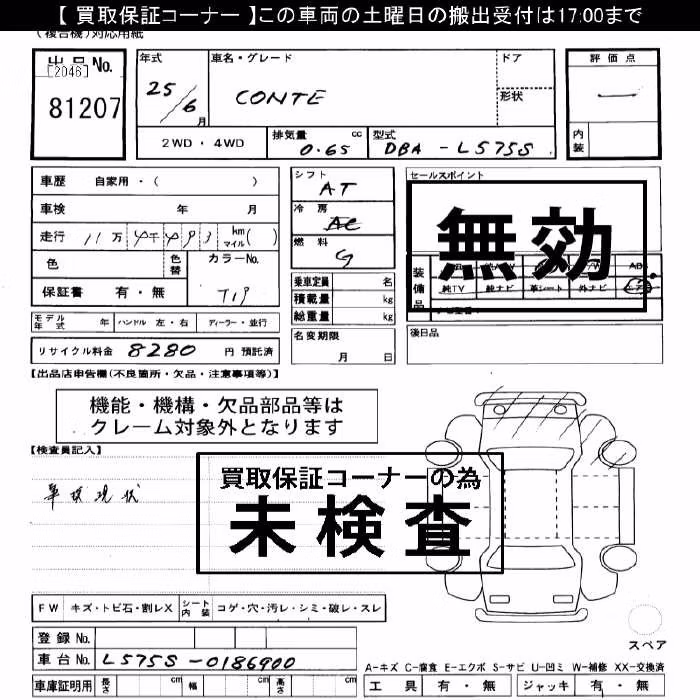 【 買取保証コーナー 】この車両の土曜日の搬出受付は17:00まで
(複合機)対応用紙
出品No.
[2046]
81207
年式
25/6月
車名・グレード
CONTE
ドア
形状
評価点
内装
2WD・4WD
排気量 0.65 cc
型式 DBA - L575S
車歴 自家用・( )
車検 年 月
走行 11万 4千 493 km マイル ( )
色
色替
カラーNo.
T19
保証書 有・無
シフト
AT
冷房
AC
燃料
G
乗車定員 名
積載量 kg
総重量 kg
名変期限
月 日
セールスポイント
無効
装備品
純TV 純ナビ 革シート 外ナビ エアB
後日品
モデル年式 年 ハンドル 左・右 ディーラー・並行
リサイクル料金 8280 円 預託済
【出品店申告欄(不良箇所・欠品・注意事項等)】
機能・機構・欠品部品等は
クレーム対象外となります
【検査員記入】
買取保証コーナーの為
未検査
FW キズ・トビ石・割レX シート内装 コゲ・穴・汚レ・シミ・破レ・スレ
登録No.
車台No. L575S-0186900
車庫証明用 長さ cm 幅 cm 高さ cm
スペア
A-キズ C-腐食 E-エクボ S-サビ U-凹ミ W-補修 XX-交換済
工具 有・無 ジャッキ 有・無